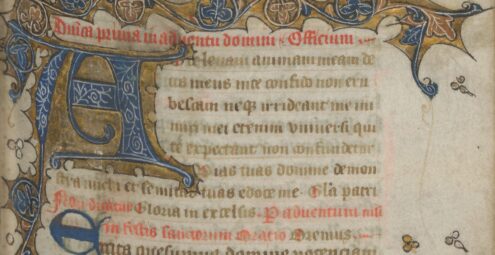 Dñica prima in adventu domini Officium
Ad te levavi animam meam de
us meus in te confido non eru
bescam neqȝ irrideant me ini
mici mei etenim universi qui
te expectant non confundentur
Vias tuas domine demon
stra michi et semitas tuas edoce me Glã patri
Non dicatur Gloria in excelsis P adventum nisi
in festis sanctorum Oratio Oremus
Excita quesumus domine potenciam